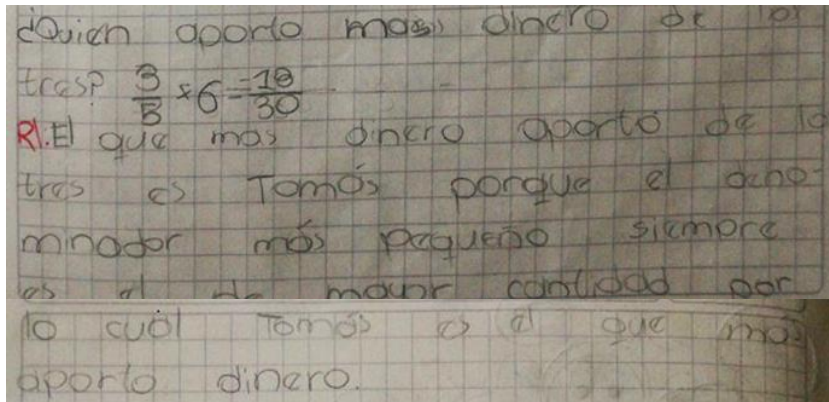 ¿Quien aporto mas dinero de los
tres? 3/5 × 6 = 18/30
R/. El que mas dinero aporto de lo
tres es Tomás porque el deno-
minador más pequeño siempre
es el de mayor cantidad por
lo cuál Tomás es el que mas
aporto dinero.